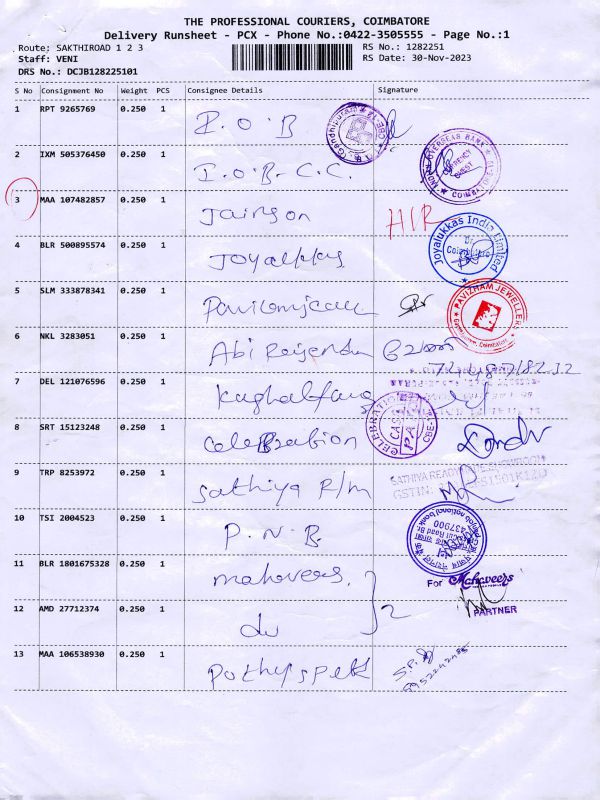 THE PROFESSIONAL COURIERS, COIMBATORE
Delivery Runsheet - PCX - Phone No.:0422-3505555 - Page No.:1
Route: SAKTHIROAD 1 2 3 RS No.: 1282251
Staff: VENI RS Date: 30-Nov-2023
DRS No.: DCJB128225101
S No Consignment No Weight PCS Consignee Details Signature
1 RPT 9265769 0.250 1 I.O.B
2 IXM 505376450 0.250 1 I.O.B-C.C.
INDIAN OVERSEAS BANK COIMBATORE
3 MAA 107482857 0.250 1 Jainson HIR
4 BLR 500895574 0.250 1 Joyalukkas
Joyalukkas India Limited
5 SLM 333878341 0.250 1
PAVIZHAM JEWELLERS
Coimbatore
6 NKL 3283051 0.250 1 Abi Rajendra
7 DEL 121076596 0.250 1
8 SRT 15123248 0.250 1 Celebration
CELEBRATION CBE
9 TRP 8253972 0.250 1 Sathiya R/m
SATHIYA READYMADE SHOWROOM
GSTIN:
10 TSI 2004523 0.250 1 P.N.B.
punjab national bank
437900
11 BLR 1801675328 0.250 1 mahaveers.
For Mahaveers
PARTNER
12 AMD 27712374 0.250 1 do 2
13 MAA 106538930 0.250 1